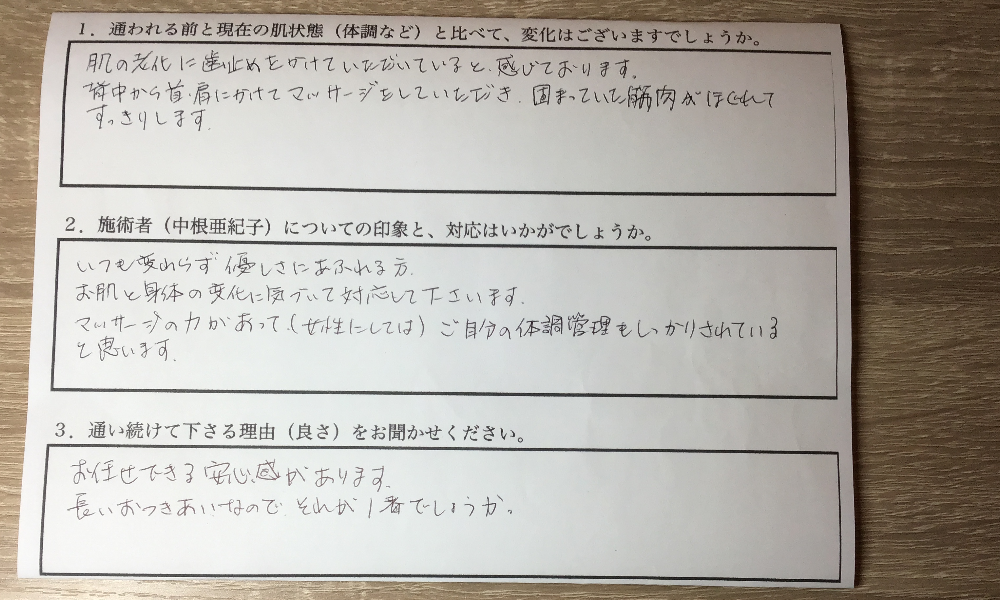 1. 通われる前と現在の肌状態（体調など）と比べて、変化はございますでしょうか。
肌の老化に歯止めをかけていただいていると感じております。
背中から首・肩にかけてマッサージをしていただき、固まっていた筋肉がほぐれて
すっきりします。
2. 施術者（中根亜紀子）についての印象と、対応はいかがでしょうか。
いつも変わらず優しさにあふれる方。
お肌と身体の変化に気づいて対応して下さいます。
マッサージの力があって（女性にしては）ご自分の体調管理もしっかりされている
と思います。
3. 通い続けて下さる理由（良さ）をお聞かせください。
お任せできる安心感があります。
長いおつきあいなので、それが1番でしょうか。